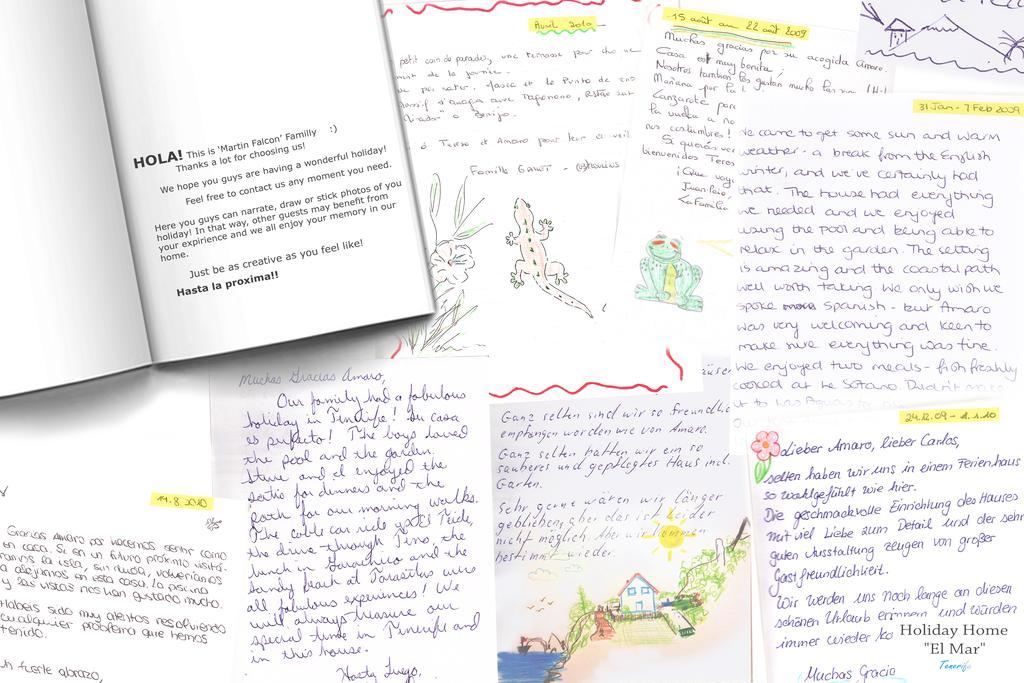 HOLA! This is 'Martin Falcon' Familly :)
Thanks a lot for choosing us!
We hope you guys are having a wonderful holiday!
Feel free to contact us any moment you need.
Here you guys can narrate, draw or stick photos of you
holiday! In that way, other guests may benefit from
your expirience and we all enjoy your memory in our
home.
Just be as creative as you feel like!
Hasta la proxima!!
Avril 2010
petit coin de paradis, une terrasse pour
de la journée.
Teresa et Amaro pour leur
Famille
15 août au 22 août 2009
Muchas gracias por su acogida Amaro.
Casa est muy bonita,
Nosotros tambien los gustan mucho
Mañana por la
Lanzarote para
la vuelta a
nos costumbres!
Si quereis
bienvenidos
¡Que
La Familia
31 Jan - 7 Feb 2009
We came to get some sun and warm
weather - a break from the English
winter, and we've certainly had
that. The house had everything
we needed and we enjoyed
using the pool and being able to
relax in the garden. The setting
is amazing and the coastal path
well worth taking. We only wish we
spoke more Spanish - but Amaro
was very welcoming and keen to
make sure everything was fine.
We enjoyed two meals - fish freshly
cooked at Le Sotano.
Muchas Gracias Amaro,
Our family had a fabulous
holiday in Tenerife! Su casa
es perfecto! The boys loved
the pool and the garden.
Steve and I enjoyed the
patio for dinners and the
path for our morning walks.
The cable car ride up El Teide,
the drive through Teno, the
lunch in Garachico and the
sandy beach at Teresitas were
all fabulous experiences! We
will always treasure our
special time in Tenerife and
in this house.
Hasta Luego,
Ganz selten sind wir so freundlich
empfangen worden wie von Amaro.
Ganz selten hatten wir ein so
sauberes und gepflegtes Haus incl.
Garten.
Sehr gerne wären wir länger
geblieben, aber das ist leider
nicht möglich. Aber wir kommen
bestimmt wieder.
24.12.09 - 1.1.10
Lieber Amaro, lieber Carlos,
selten haben wir uns in einem Ferienhaus
so wohlgefühlt wie hier.
Die geschmackvolle Einrichtung des Hauses
mit viel Liebe zum Detail und der sehr
guten Ausstattung zeugen von großer
Gastfreundlichkeit.
Wir werden uns noch lange an diesen
schönen Urlaub erinnern und würden
immer wieder ko
Muchas Gracia
19.8.2010
Gracias Amaro por hacernos sentir como
en casa. Si en un futuro próximo visitá-
ramos la isla, sin duda, volveríamos
a alojarnos en esta casa. La piscina
y las vistas nos han gustado mucho.
Habeis sido muy atentos resolviendo
cualquier problema que hemos
tenido.
Un fuerte abrazo,
Holiday Home
"El Mar"
Tenerife